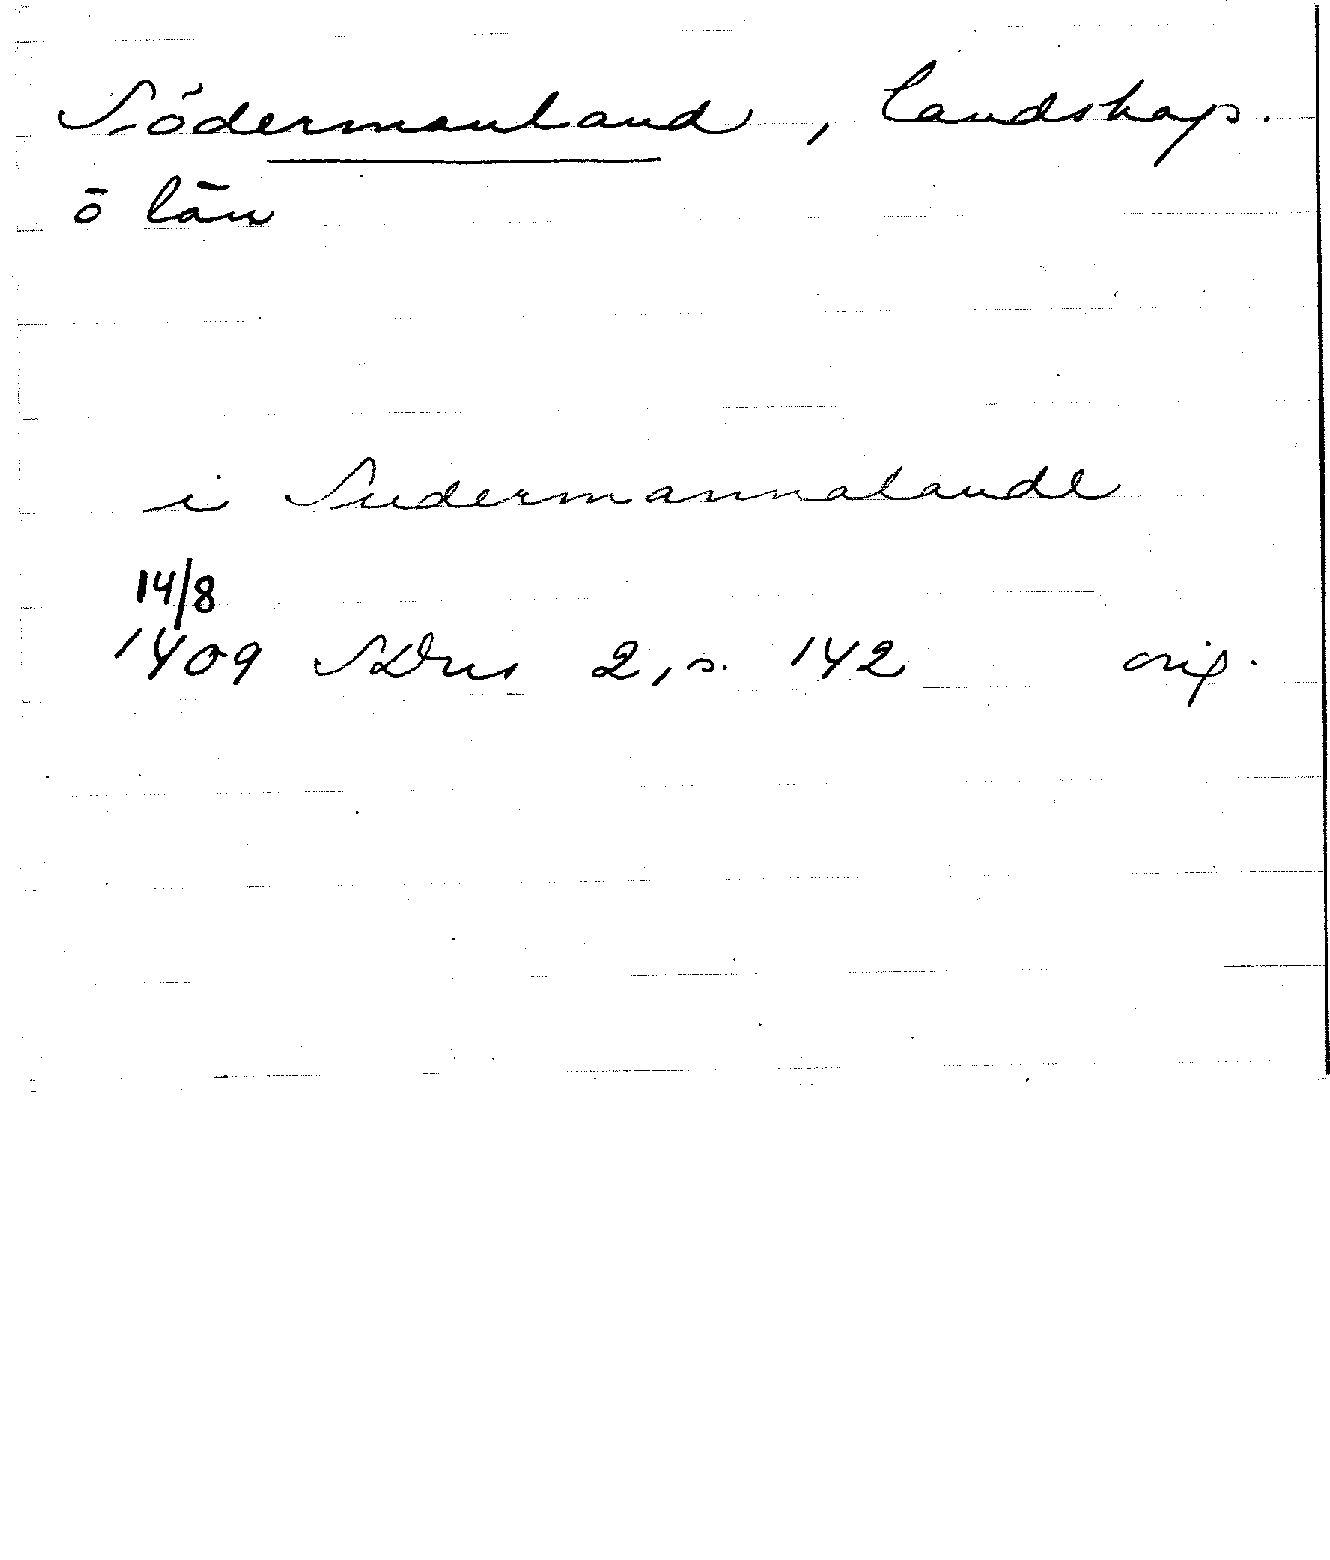 Södermanland, landskap.
o län
i Sudermannalande
14/8
1409 SDns 2, s. 142 orig.